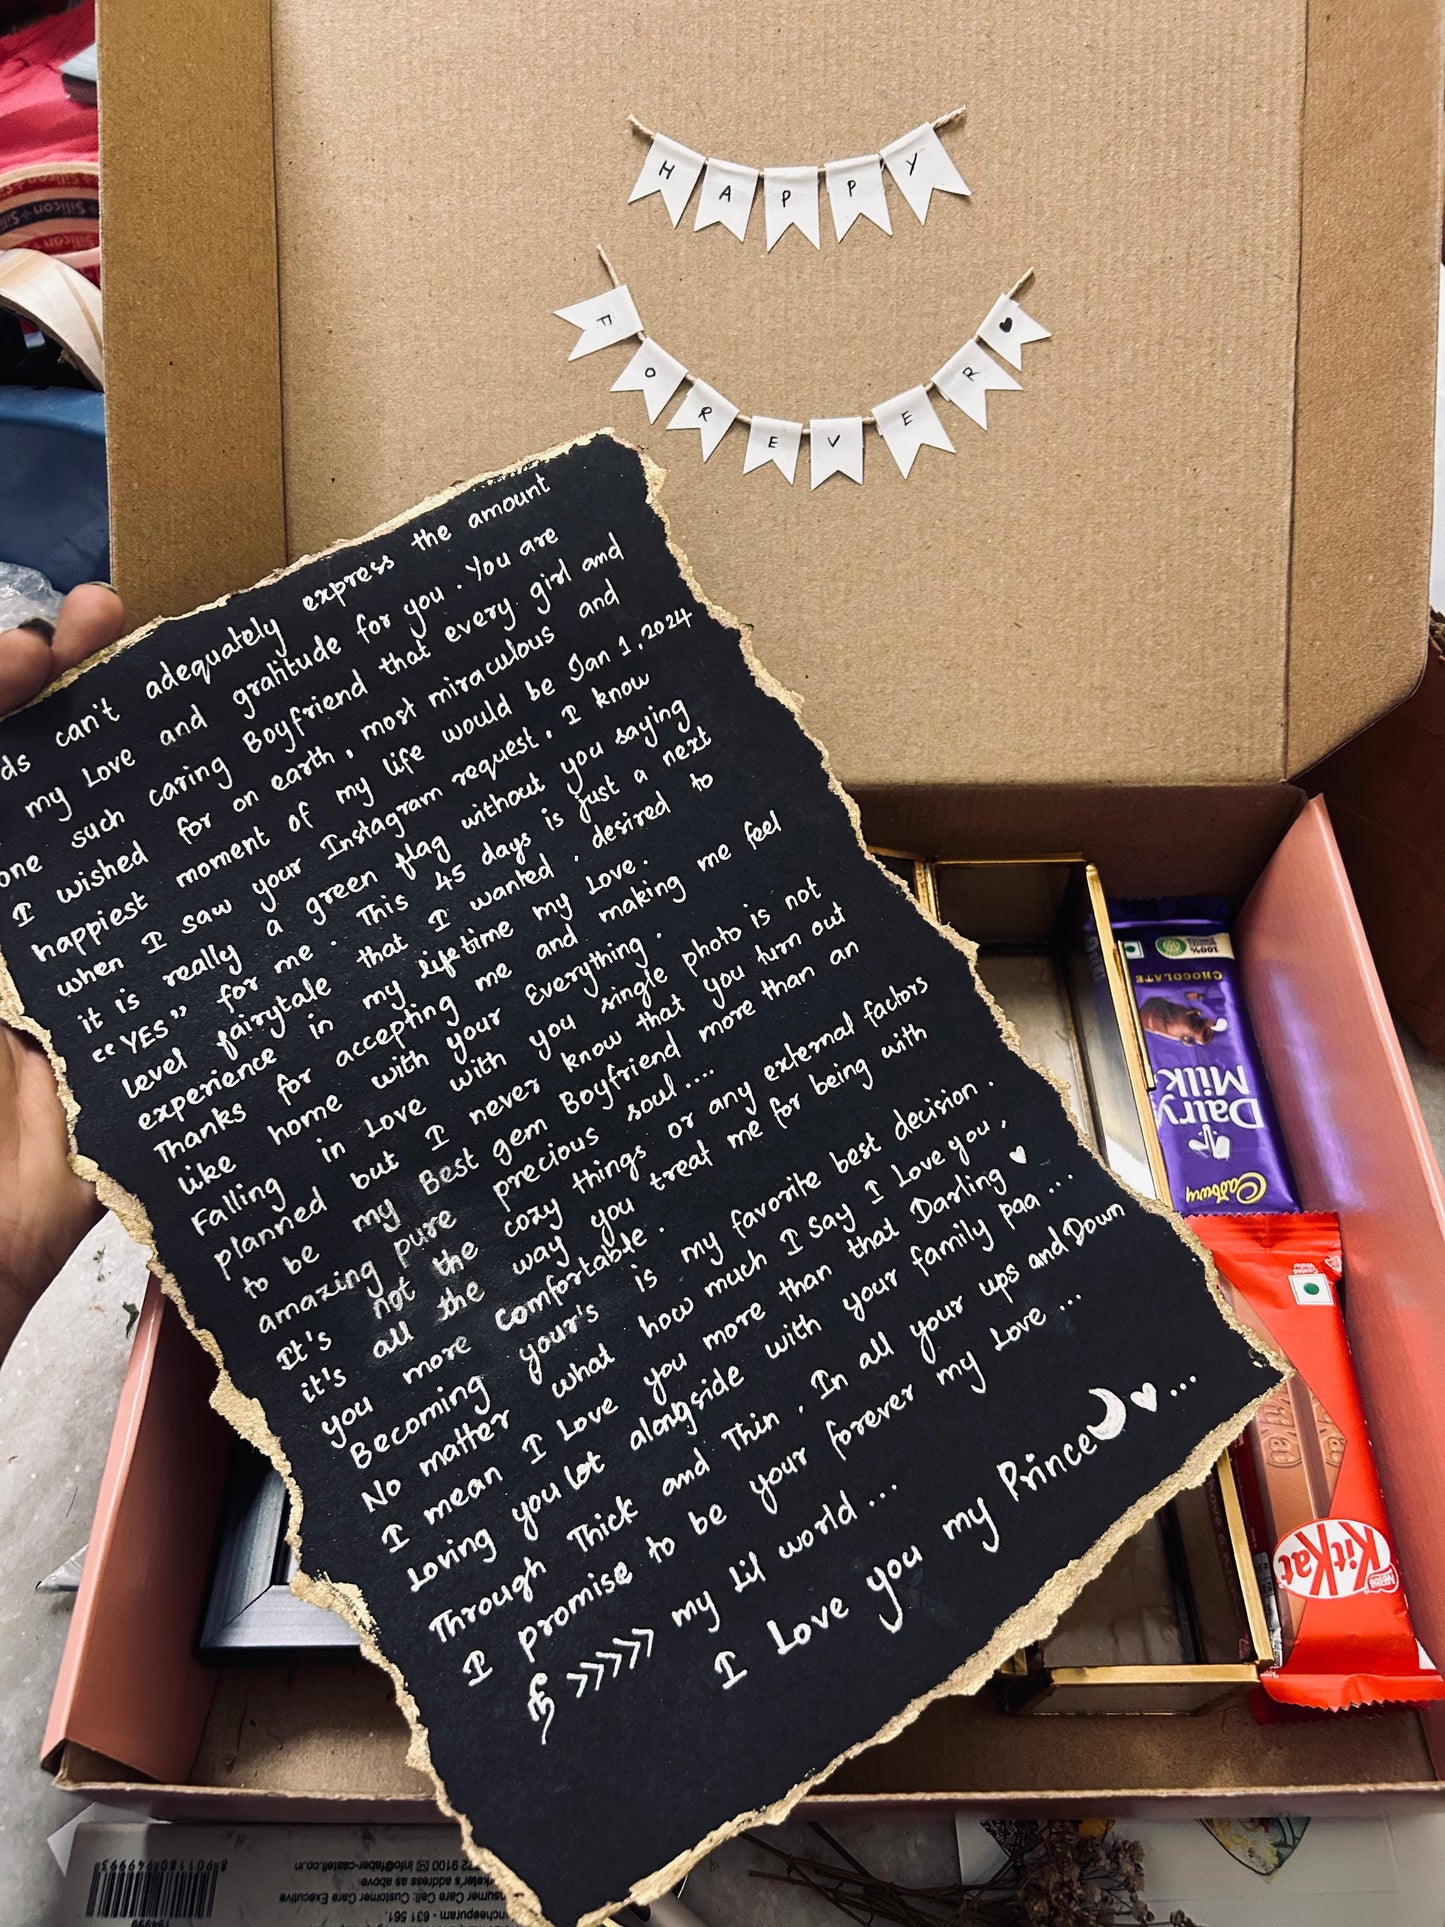 HAPPY
FOREVER
ds can't adequately express the amount
my Love and gratitude for you. You are
one such caring Boyfriend that every girl and
I wished for on earth, most miraculous and
happiest moment of my life would be Jan 1, 2024
when I saw your Instagram request. I know
it is really a green flag without you saying
"YES" for me. This 45 days is just a next
Level fairytale that I wanted, desired to
experience in my lifetime my Love.
Thanks for accepting me and making me feel
like home with your Everything.
Falling in Love with you single photo is not
planned but I never know that you turn out
to be my Best gem Boyfriend more than an
amazing pure precious soul....
It's not the cozy things or any external factors
it's all the way you treat me for being with
you more comfortable.
Becoming your's is my favorite best decision.
No matter what how much I say I Love you,
I mean I Love you more than that Darling
Loving you lot alongside with your family paa...
Through Thick and Thin, In all your ups and Down
I promise to be your forever my Love...
நீ >>>>> my Lil world...
I Love you my Prince ...
100%
CHOCOLATE
Dairy
Milk
Cadbury
Nestle
KitKat
Silicon
Silicon
8901180949993
194999
info@faber-castell.co.in
above
Customer Care Executive
631 561.